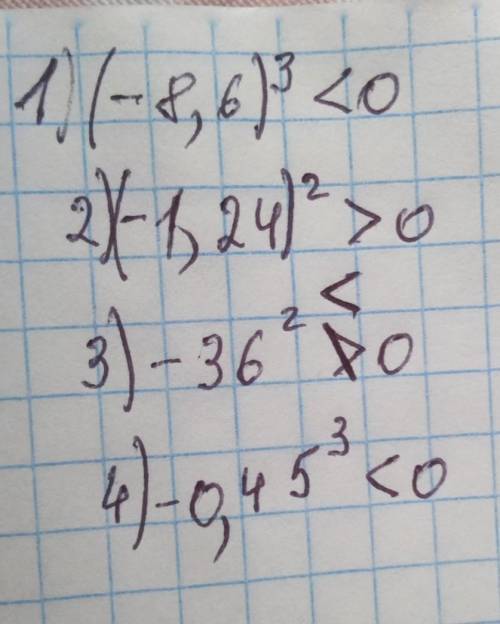 1) (-8,6)³ <0
2) (-1,24)² >0
<
3) -36² >0
4) -0,45³ <0